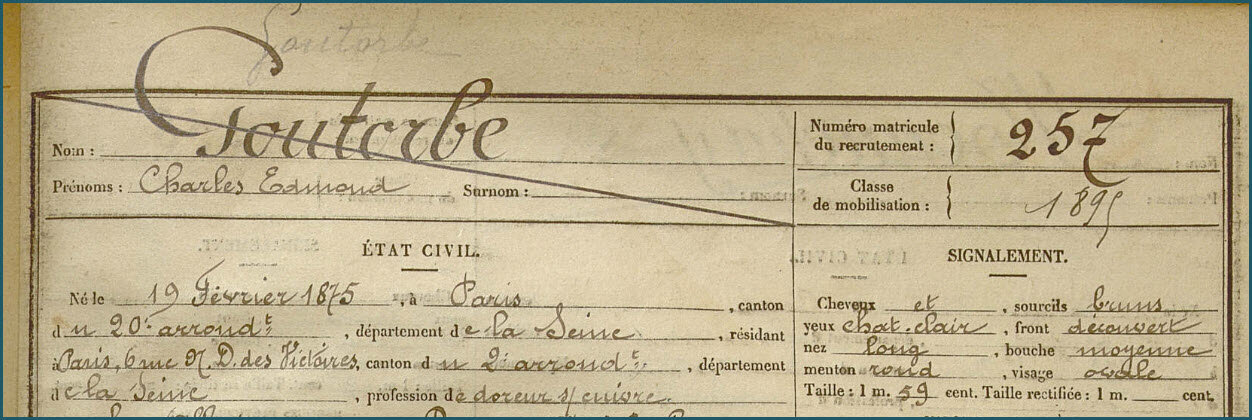 Goutorbe
Goutorbe
Nom :
Prénoms : Charles Edmond Surnom :
Numéro matricule
du recrutement : 257
Classe
de mobilisation : 1895
ÉTAT CIVIL.
Né le 19 Février 1875, à Paris, canton
du 20e arrondt, département de la Seine, résidant
à Paris, 6 rue N. D. des Victoires, canton du 2e arrondt, département
de la Seine, profession de doreur s/ cuivre.
SIGNALEMENT.
Cheveux et, sourcils bruns
yeux chat. clair, front découvert
nez long, bouche moyenne
menton rond, visage ovale
Taille : 1 m. 59 cent. Taille rectifiée : 1 m. cent.